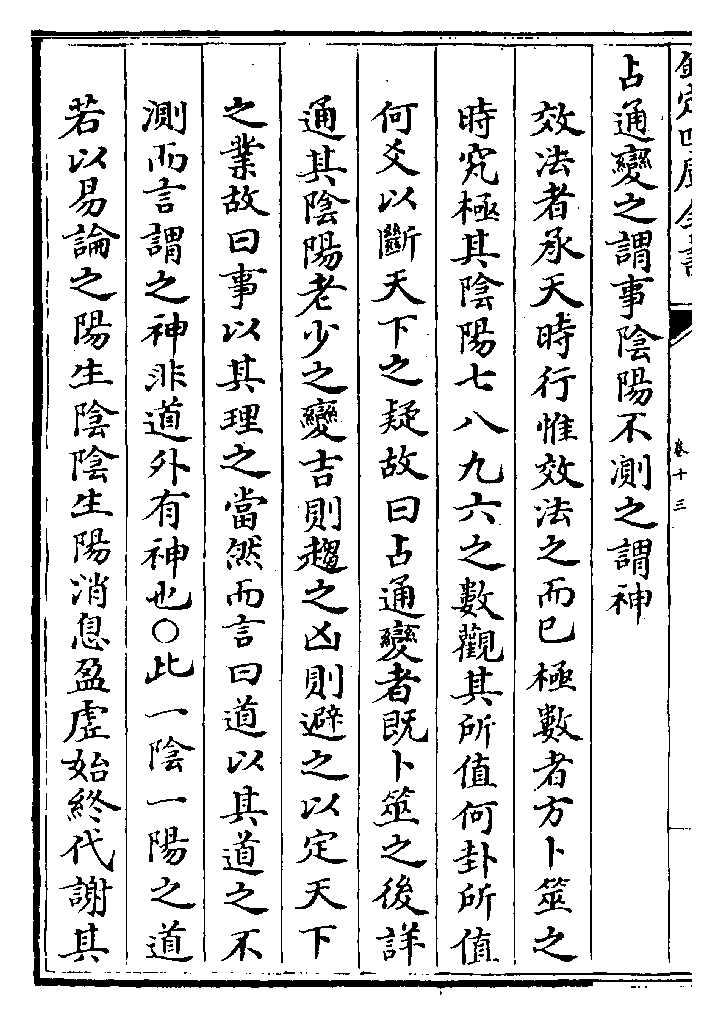 欽定四庫全書
卷十三
占通變之謂事陰陽不測之謂神
效法者承天時行惟效法之而已極數者方卜筮之
時究極其陰陽七八九六之數觀其所值何卦所值
何爻以斷天下之疑故曰占通變者既卜筮之後詳
通其陰陽老少之變吉則趨之凶則避之以定天下
之業故曰事以其理之當然而言曰道以其道之不
測而言謂之神非道外有神也○此一陰一陽之道
若以易論之陽生陰陰生陽消息盈虛始終代謝其